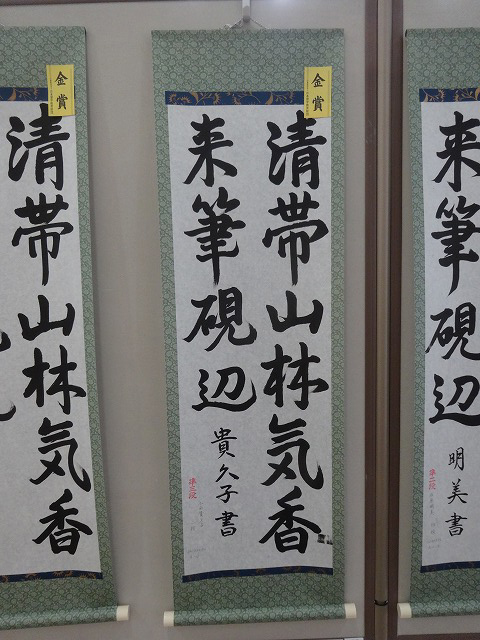 金賞
清帯山林気香
金賞
清帯山林気香
来筆硯辺
貴久子書
準三段
来筆硯辺
明美書
準二段